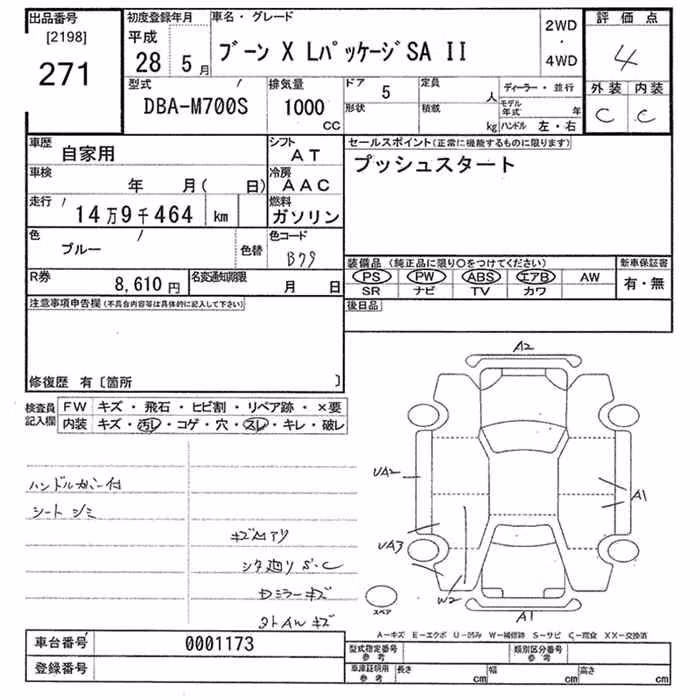 出品番号 [2198] 271
初度登録年月 平成 28 5月
車名・グレード ブーン X Lパッケージ SA II
2WD・4WD
評価点 4
外装 内装
C C
型式 DBA-M700S
排気量 1000 CC
ドア 5 形状
定員 人 積載 kg
ディーラー・並行
モデル年式 年
ハンドル 左・右
車歴 自家用
シフト AT
車検 年 月( 日)
冷房 AAC
走行 14万9千464 km
燃料 ガソリン
色 ブルー 色替
色コード B79
R券 8,610円
名変通知期限 月 日
セールスポイント(正常に機能するものに限ります)
プッシュスタート
装備品 (純正品に限り○をつけてください)
PS PW ABS エアB AW
SR ナビ TV カワ
新車保証書
有・無
後日品
注意事項申告欄(不具合内容等は具体的に記入して下さい)
修復歴 有〔箇所 〕
検査員記入欄
FW キズ・飛石・ヒビ割・リペア跡・×要
内装 キズ・汚レ・コゲ・穴・スレ・キレ・破レ
ハンドルカバー付
シートシミ
キズ凹アリ
シタ廻り S・C
ミラーキズ
タトAWキズ
A2
UA2
A1
UA3
W2
A1
スペア
A-キズ E-エクボ U-凹み W-補修跡 S-サビ C-腐食 XX-交換済
車台番号 0001173
登録番号
型式指定番号 参考
類別区分番号 参考
車庫証明用 参考 長さ cm 幅 cm 高さ cm